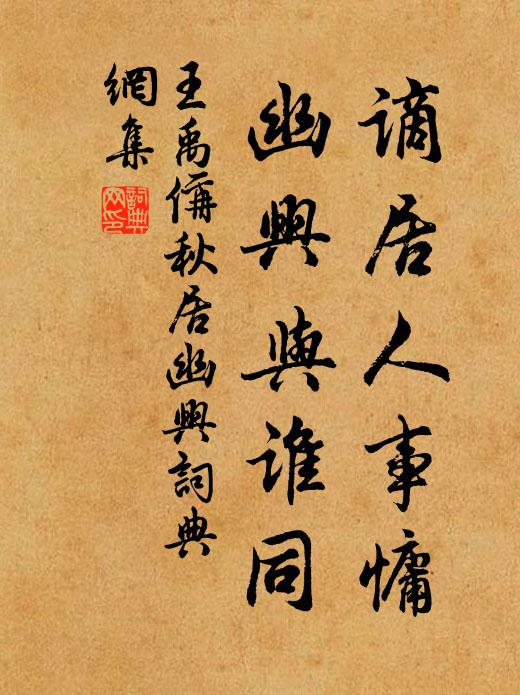 謫居人事慵
幽興與誰同
王禹偁秋居幽興詞典
網集
詞典
网印